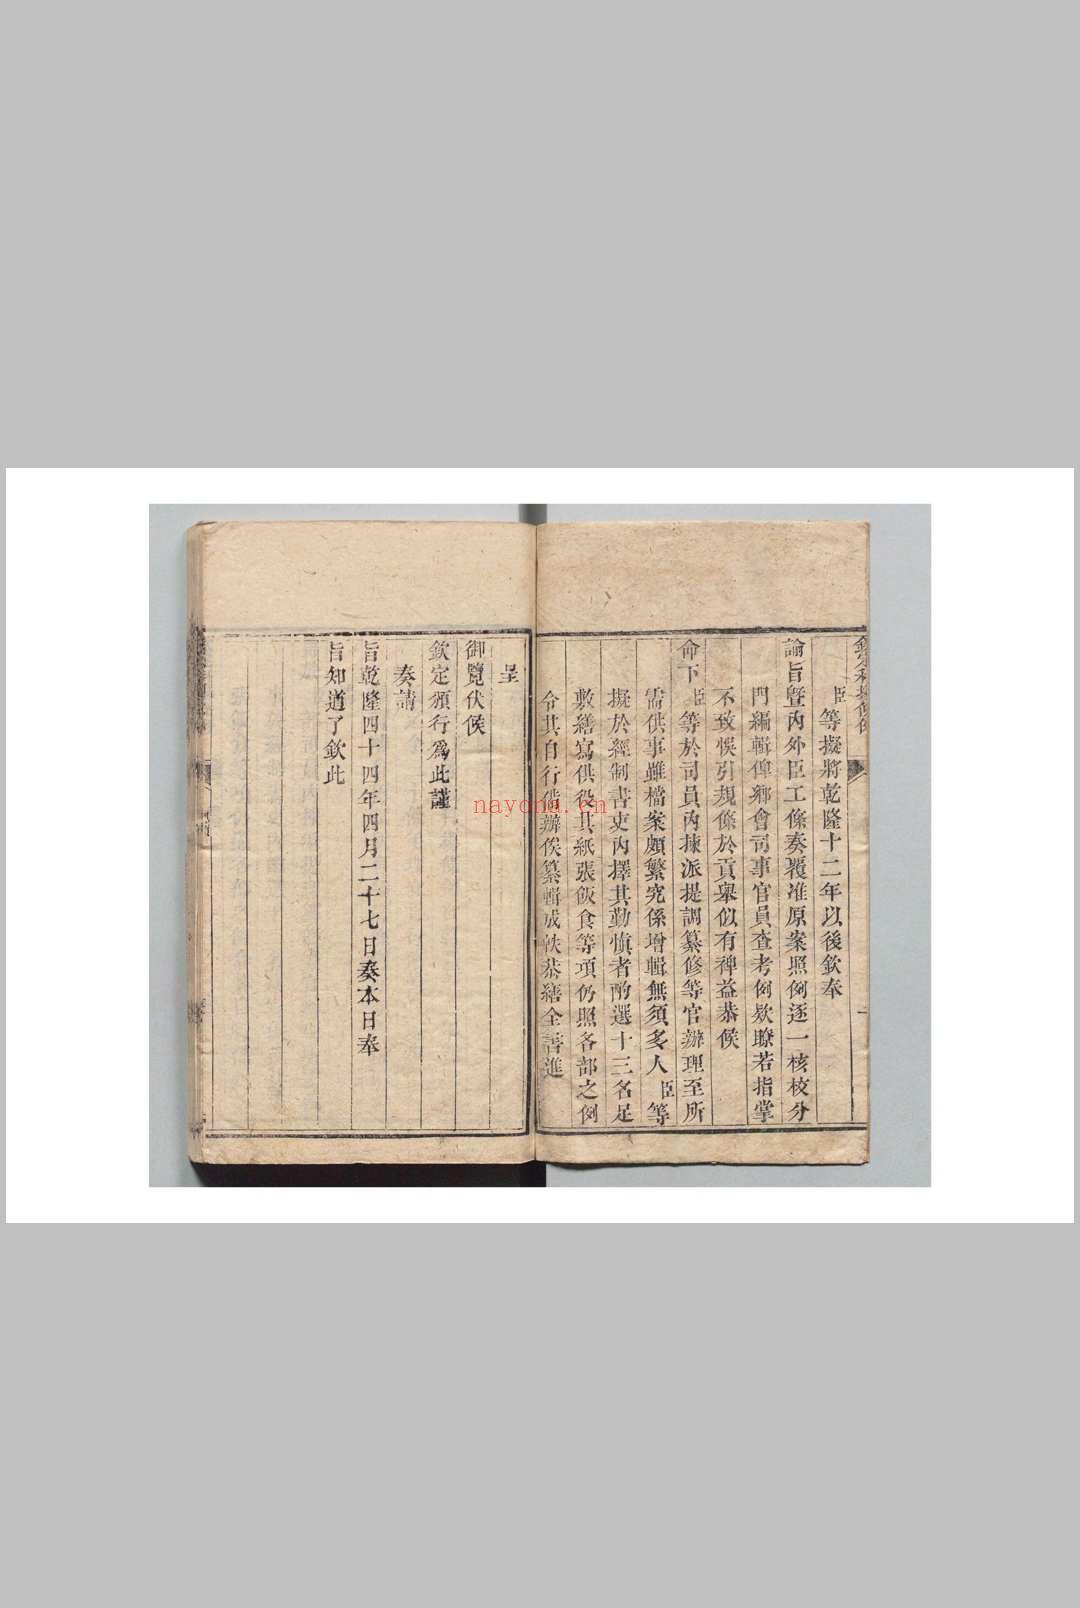 臣等擬將乾隆十二年以後欽奉
諭旨曁內外臣工條奏覆准原案照例逐一核校分
門編輯俾鄉會司事官員查考例欵瞭若指掌
不致悞引規條於貢舉似有裨益恭候
命下臣等於司員內揀派提調纂修等官辦理至所
需供事雖檔案頗繁究係增輯無須多人臣等
擬於經制書吏內擇其勤慎者酌選十三名足
敷繕寫供役其紙張飯食等項仍照各部之例
令其自行備辦俟纂輯成帙恭繕全書進
呈
御覽伏候
欽定頒行爲此謹
奏請
旨乾隆四十四年四月二十七日奏本日奉
旨知道了欽此
nayona.cn